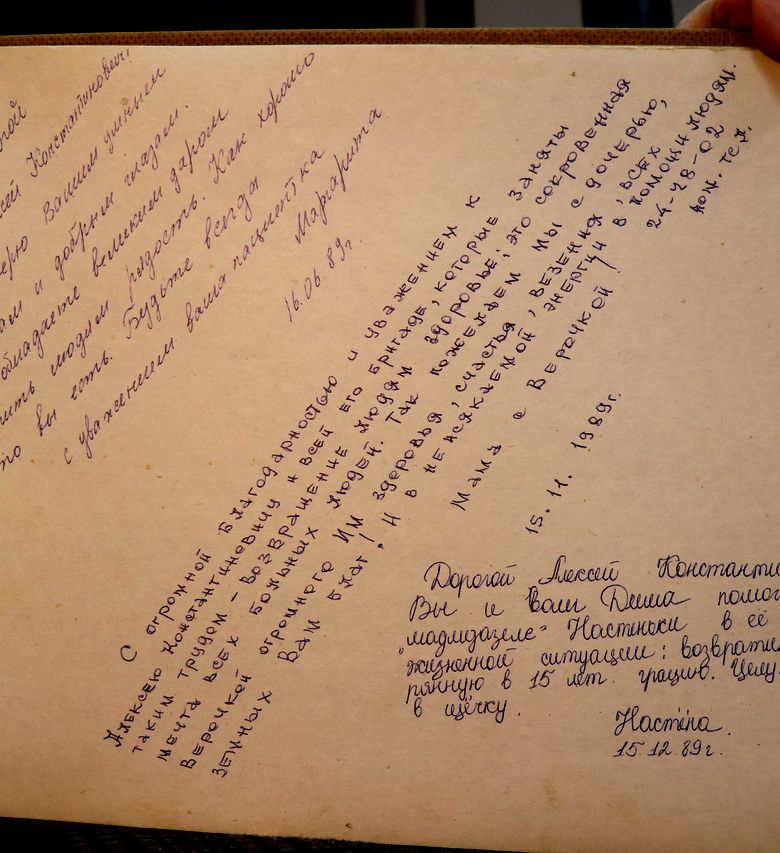 Константинович!
верю Вашим умным
и добрым глазам.
обладаете великим даром
людям радость. Как хорошо
что вы есть. Будьте всегда
с уважением ваша пациентка
Маргарита
16.06.89г.
С огромной благодарностью и уважением к
Алексею Константиновичу и всей его бригаде, которые заняты
таким трудом – возвращение людям здоровье: это сокровенная
мечта всех больных людей. Так пожелаем мы с дочерью,
Верочкой огромного им здоровья, счастья, везения, всех
земных Вам благ! И в неиссякаемой энергии в помощи людям.
Мама с Верочкой!
24-28-02
дом. тел.
15.11.1989г.
Дорогой Алексей Константи
Вы и Ваш Деша помог
„мадмидазеле" Настеньки в её
жизненной ситуации: возвратили
рянную в 15 лет. грацию. Целу
в щёчку.
Настёна.
15.12.89г.